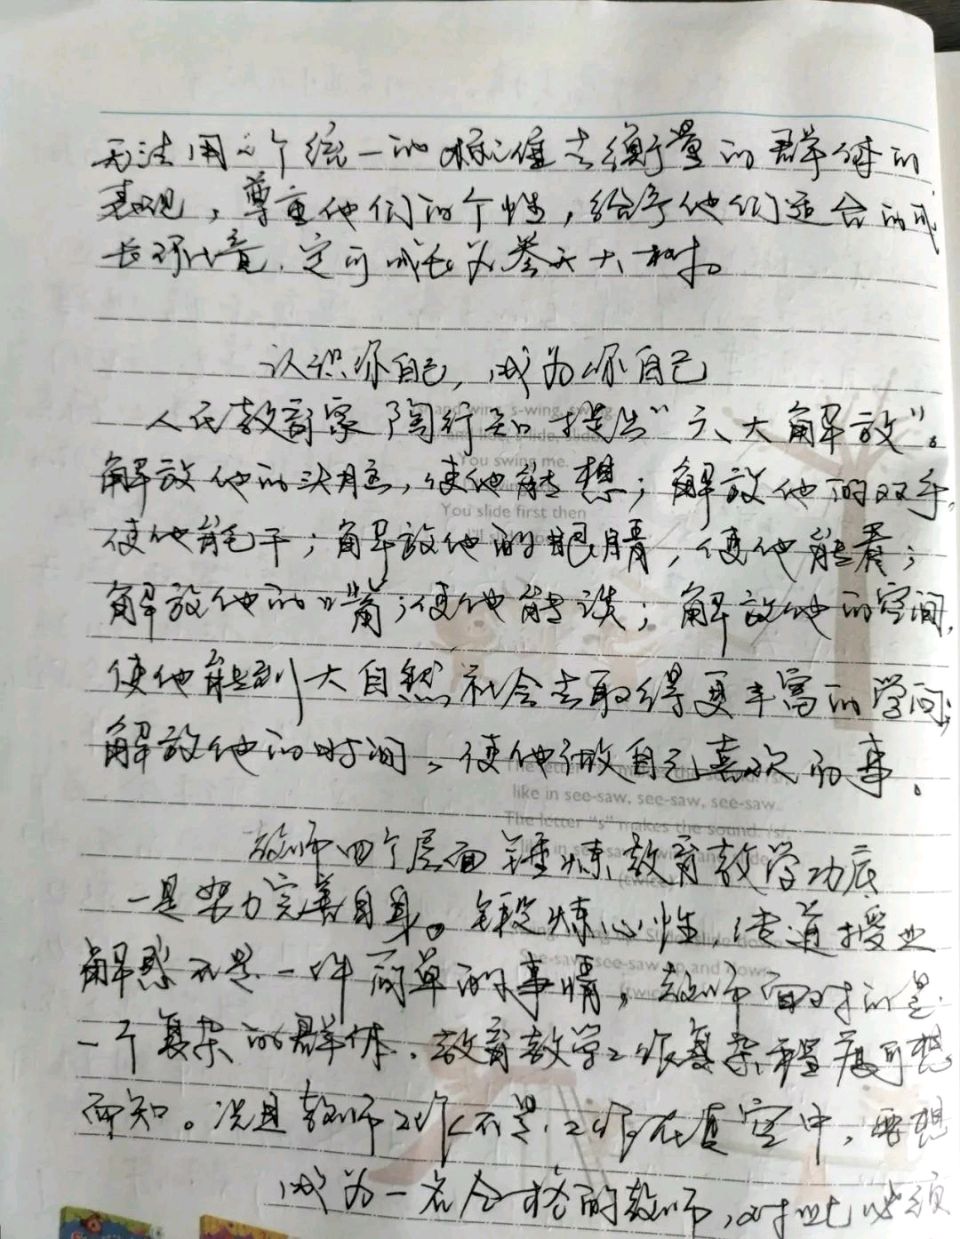 无法用一个统一的标准去衡量的群体的
表现，尊重他们的个性，给予他们适合的成
长环境，定可成长为参天大树。
认识你自己，成为你自己
人民教育家陶行知提出“六大解放”。
解放他的头脑，使他能想；解放他的双手，
使他能干；解放他的眼睛，使他能看；
解放他的嘴；使他能谈；解放他的空间，
使他能到大自然社会去取得更丰富的学问；
解放他的时间，使他做自己喜欢的事。
教师四个层面锤炼教育教学功底
一是努力完善自身。锻炼心性，传道授业
解惑不是一件简单的事情，教师面对的是
一个复杂的群体，教育教学工作复杂程度可想
而知。况且教师工作不是工作在真空中，要想
成为一名合格的教师，对此必须
s-wing, swing
slide, slide
You swing me.
You slide first then
The letter
like in see-saw, see-saw, see-saw.
The letter "s" makes the sound /s/,
see-saw up and down